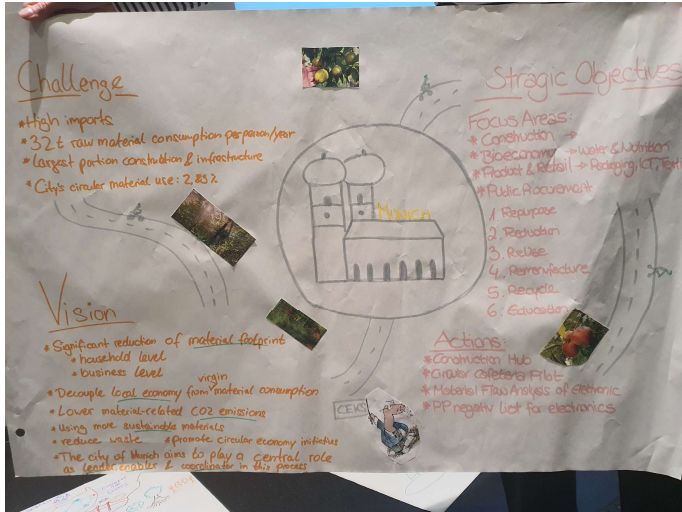 Challenge
*High imports
*32t raw material consumption per person/year
*largest portion construction & infrastructure
*City's circular material use: 2,83%
Vision
*Significant reduction of material footprint
*household level
*business level
virgin
*Decouple local economy from material consumption
*Lower material-related CO2 emissions
*Using more sustainable materials
*reduce waste *Promote circular economy initiatives
*The city of Munich aims to play a central role
as leader, enabler & coordinator in this process
MUNICH
CEKS
Stragic Objectives
Focus Areas:
*Construction →
*Bioeconomy → Water & Nutrition
*Product & Retail → Packaging, ICT, Texti
*Public Procurement
1. Repurpose
2. Reduction
3. ReUse
4. Remanufacture
5. Recycle
6. Education
Actions:
*Construction Hub
*Circular Cafeteria Pilot
*Material Flow Analysis of Electronic
*PP negativ List for electronics